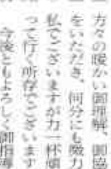 方々の暖かい御理解、御協
をいただき、何分にも微力
私でございますが力一杯頑
って行く所存でございます
今後ともよろしく御指導